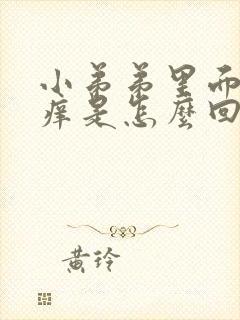 小弟弟里面
痒是怎麼回
黄玲